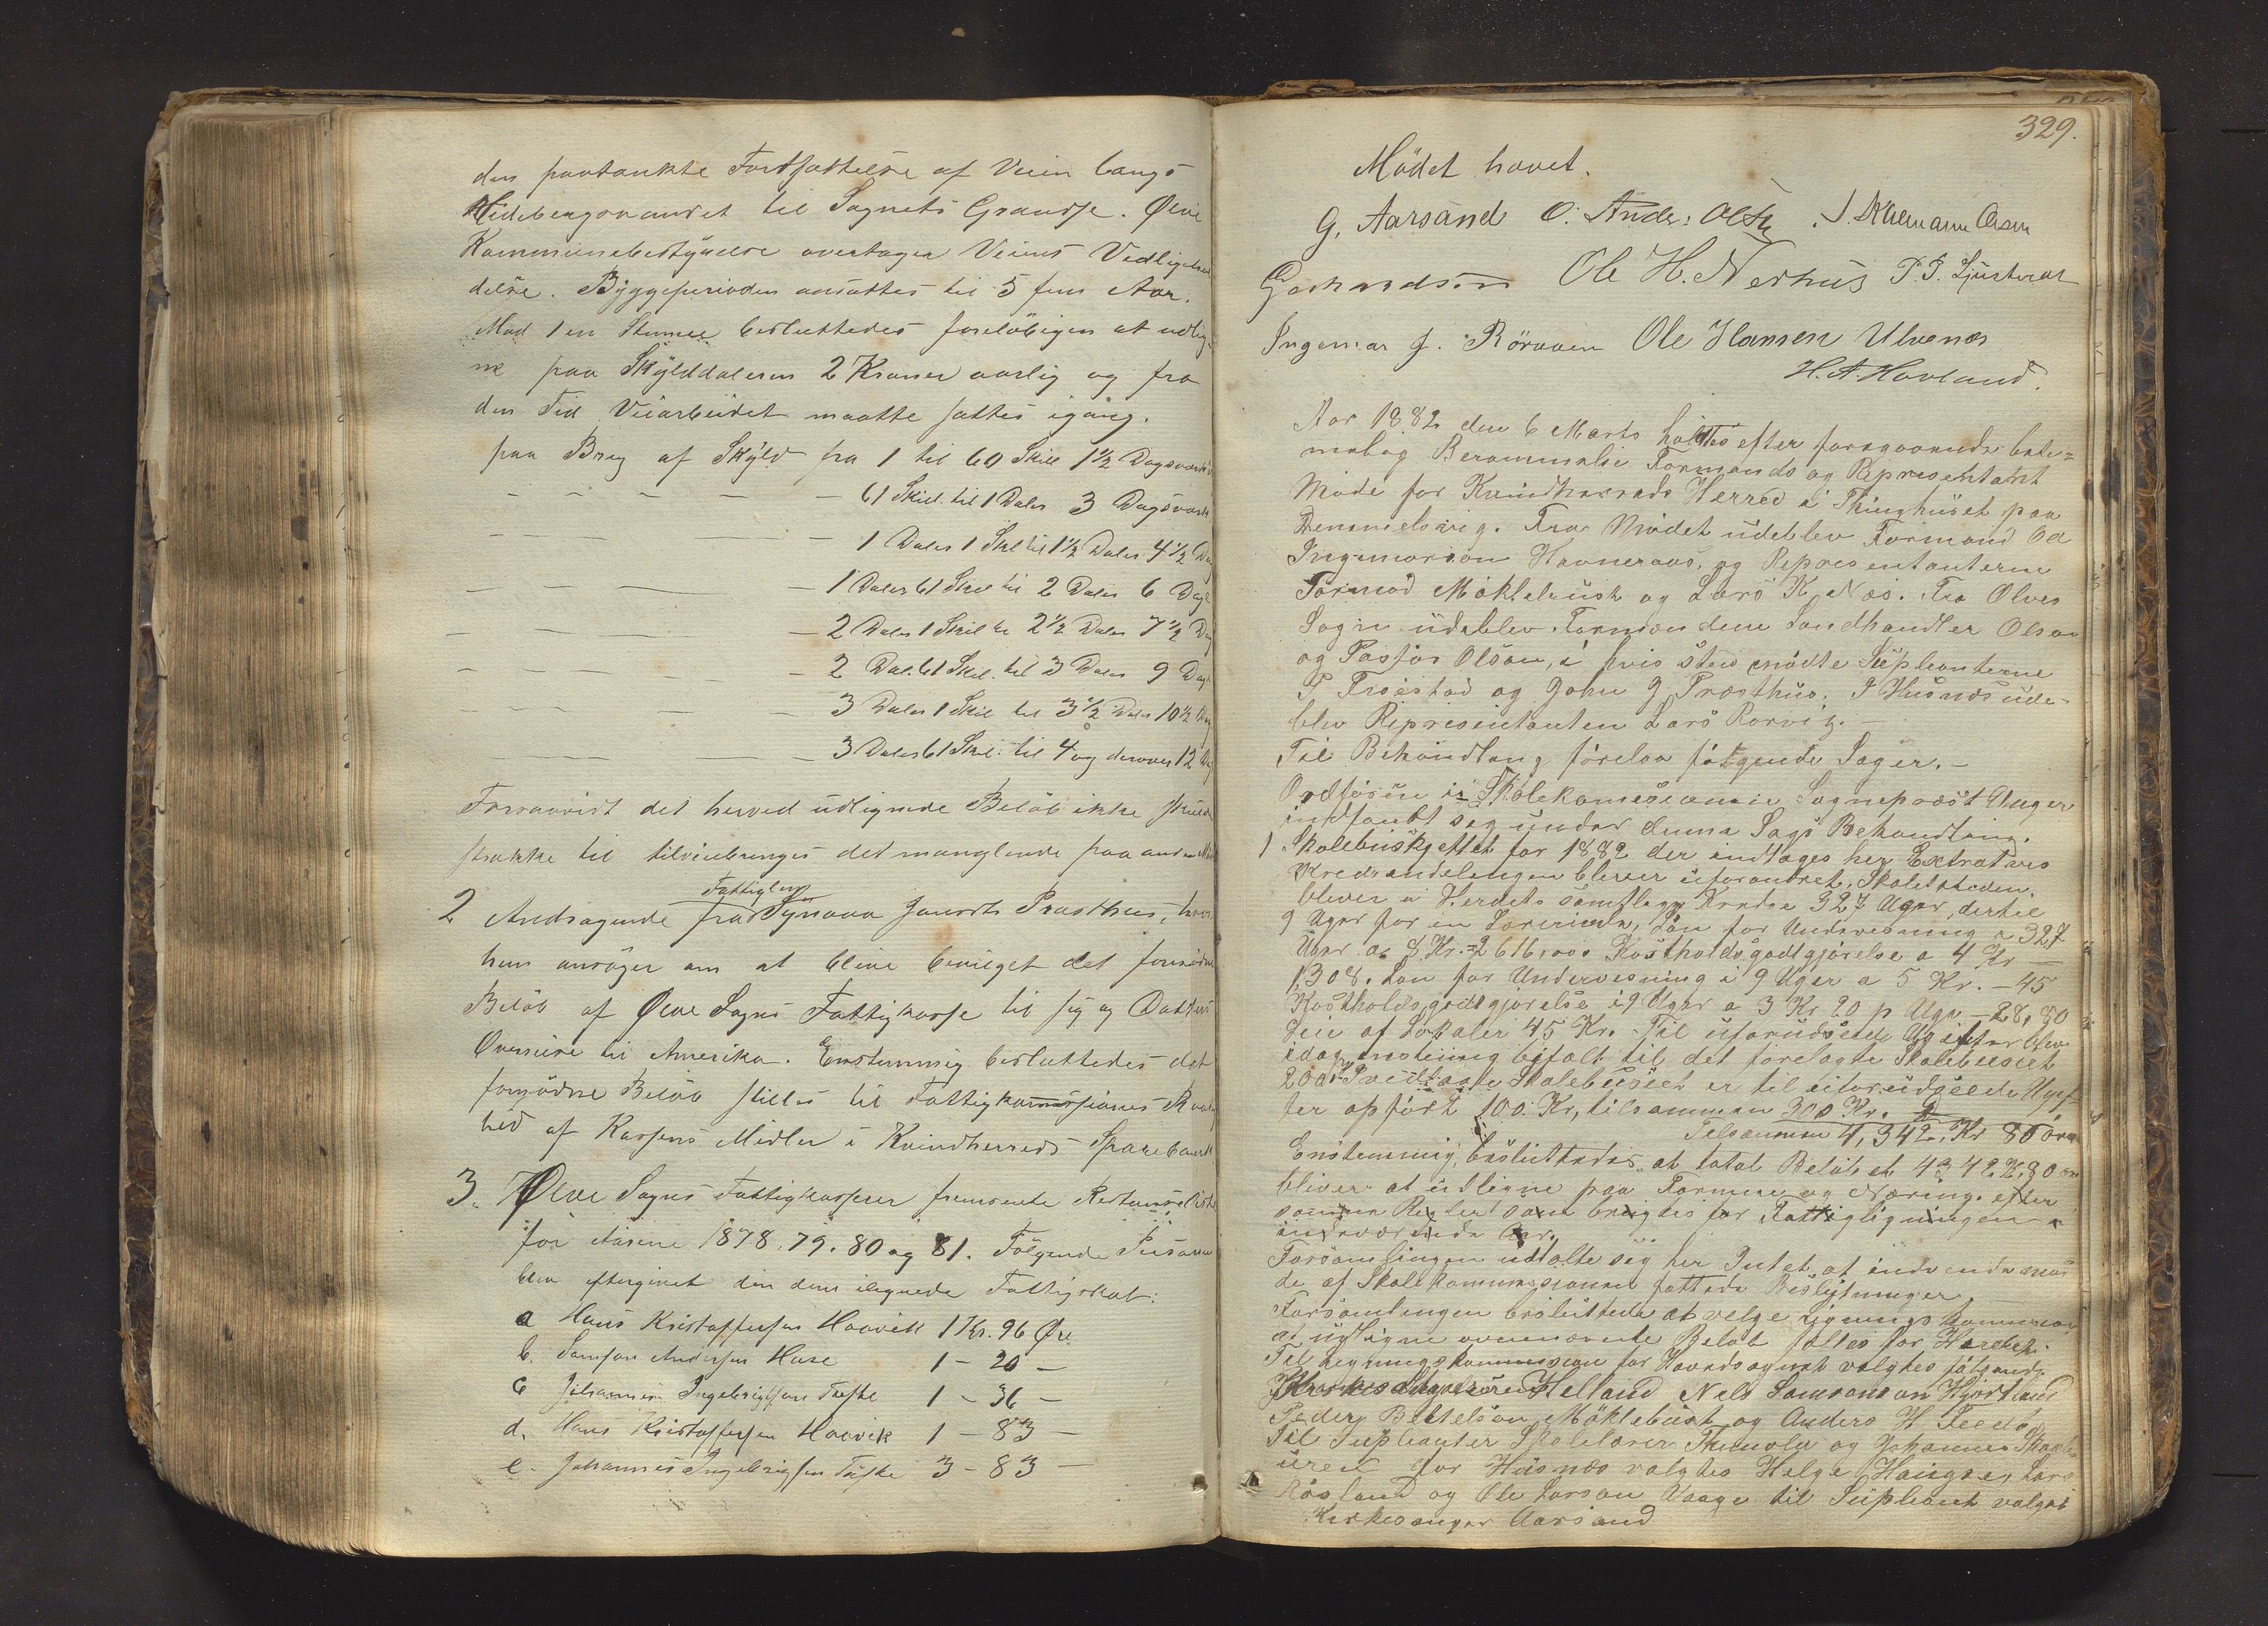 den paatænkte Fortsættelse af Veien langs
Hidebergsvandet til Sognets Grændse. Ølve
Kommunebestyrelse overtager Veiens Vedligehol
delse. Byggeperioden ansættes til 5 fem Aar.
Mod 1 en Stemme besluttedes foreløbigen at udlig
ne paa Skylddaleren 2 Kroner aarlig og fra
den Tid Veiarbeidet maatte sættes igang.
paa Brug af Skyld fra 1 til 60 Skill 1 1/2 Dagsværk
— — — — — 61 Skill. til 1 Daler 3 Dagsværk
— — — — — 1 Daler 1 Skil til 1 1/2 Daler 4 1/2 Dag
— — — — — 1 Daler 61 Skil til 2 Daler 6 Dag
— — — — — 2 Daler 1 Skil til 2 1/2 Daler 7 1/2 Dag
— — — — — 2 Dal. 61 Skil. til 3 Daler 9 Dag
— — — — — 3 Daler 1 Skil til 3 1/2 Daler 10 1/2 Dag
— — — — — 3 Daler 61 Skil. til 4 og derover 12 Dag
Forsaavidt det herved udlignede Beløb ikke skulde
strække til tilveiebringes det manglende paa anden Maade
2 Andragende fra Fattiglem Synnøva Joensdt Præsthus, hvori
hun ansøger om at blive bevilget det fornødne
Beløb af Ølve Sogns Fattigkasse til sig og Datters
Overreise til Amerika. Enstemmig besluttedes det
fornødne Beløb stilles til Fattigkommissionens Raa
hed af Kassens Midler i Kvindherreds Sparebank
3. Ølve Sogns Fattigkasserer fremsendte Restanseliste
for Aarene 1878. 79. 80 og 81. Følgende Personer
blev eftergivet den dem ilignede Fattigskat:
a Hans Kristoffersen Haavik 1 Kr. 96 Øre
b. Samson Andersen Huse 1 – 20 –
c Johannes Ingebrigtsen Tufte 1 – 36 –
d. Hans Kristoffersen Haavik 1 – 83 –
e. Johannes Ingebrigtsen Tufte 3 – 83 –
329.
Mödet hævet.
G. Aarsand O. Anders: Olsen
Gerhardsen Ole H. Nerhus P. P. Ljusteraas
Ingemar J. Rörvven Ole Hansen Ulvenæs
H. A. Havland.
Aar 1882 den 6 Marts holdtes efter foregaaende bete=
melig Berammelse Formands og Representant
Møde for Kvindherreds Herred i Thinghuset paa
Demmelsvig. Fra Mødet udeblev Formand Od
Ingemarson Havneraas, og Representanterne
Tormod Møklebust og Lars K. Næs. Fra Ølves
Sogn udeblev Formændene Landhandler Olsen
og Pastor Olsen, i hvis sted mødte Supleanterne
P. Frøistad og John J. Præsthus. I Husnæs ude-
blev Representanten Lars Rørvig. —
Til Behandlang forelaa følgende Sager. —
Ordføren i Skolekomesionen Sogneprest Unger
indfandt sig under denne Sags Behandling.
1 Skolebudsjettet for 1882 der indtages her Extratvis
Kredsindelingen bliver uforandret. Skoletiden
bliver i Herdets samtlige Kredse 327 Uger, dertil
9 Uger for en Lærerinde, Løn for Undervisning a 327
Uger a 8 Kr. = 2616,00. Kostholdsgodtgjørelse a 4 Kr —
1,308. Løn for Undervesning i 9 Uger a 5 Kr. – 45
Kostholdsgodtgjørelse i 9 Uger a 3 Kr 20 p Uge – 28,80
Leie af Lokaler 45 Kr. Til uforudseede Udgifter blev
idag enstemig bifalt til det forelagte Skolebudset
200 Kr. I vedtagte Skolebudset er til uforudseede Ugif-
ter opført 100 Kr, tilsammen 300 Kr.
Tilsammen 4,342, Kr 80 øre
Enstemmig besluttedes at total Beløbet 4342 Kr, 80 øre
bliver at udligne paa Formue og Næring. efter
samme Regler som brugtes for Fattigligningen
indeværende Aar.
Forsamlingen udtalte sig her Intet at indvende mod
de af Skolekommissionen fattede Beslutninger.
Forsamlingen besluttede at velge Ligningskommission
at udligne ovennævnte Beløb fælles for Herredet.
Til Legningskommission for Hovedsognet valgtes følgende
Helland Nels Samsonson Hjortland
Peder Bertelson Møklebust og Anders H. Feed
Til Supleanter Skolelærer Themola og Johannes Skaale
uren for Husnæs valgtes Helge Hauge, Lars
Røsland og Ole Larson Vaage til Supleant valgtes
Kirkesanger Aarsand